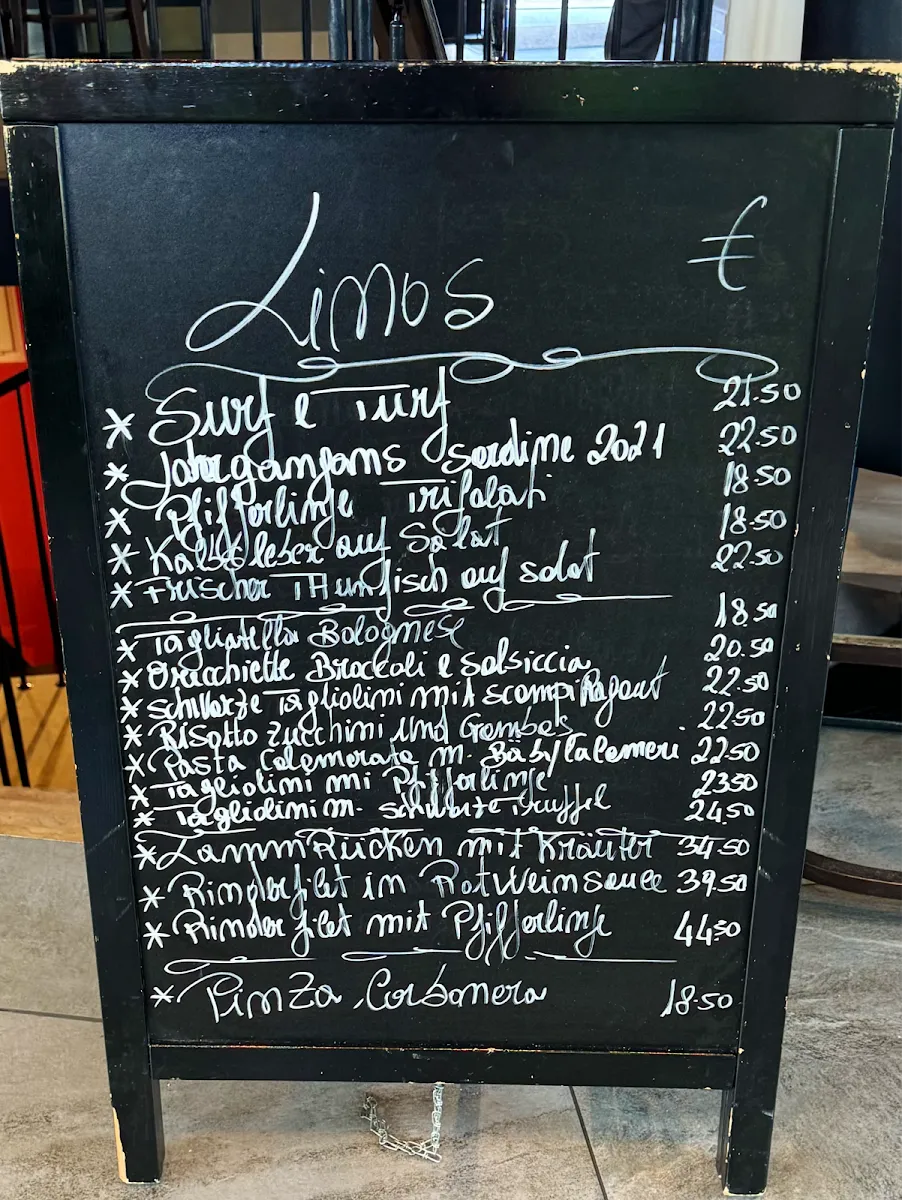 Limos €
* Surf e Turf 21.50
* Jahrgangans Sardine 2021 22.50
* Pfifferlinge Trifolati 18.50
* Kalbsleber auf Salat 18.50
* Frischer Thunfisch auf salat 22.50
* Tagliatella Bolognese 18.50
* Orecchiette Broccoli e Salsiccia 20.50
* schwarze Tagliolini mit scampi Ragout 22.50
* Risotto Zucchini und Gambas 22.50
* Pasta Calamarata m. Baby Calameri 22.50
* Tagliolini mi Pfifferlinge 23.50
* Tagliolini m. schwarze Truffel 24.50
* LammRücken mit Kräuter 34.50
* Rinderfilet in RotWeinsauce 39.50
* Rinder filet mit Pfifferlinge 44.50
* Pinza Carbonara 18.50